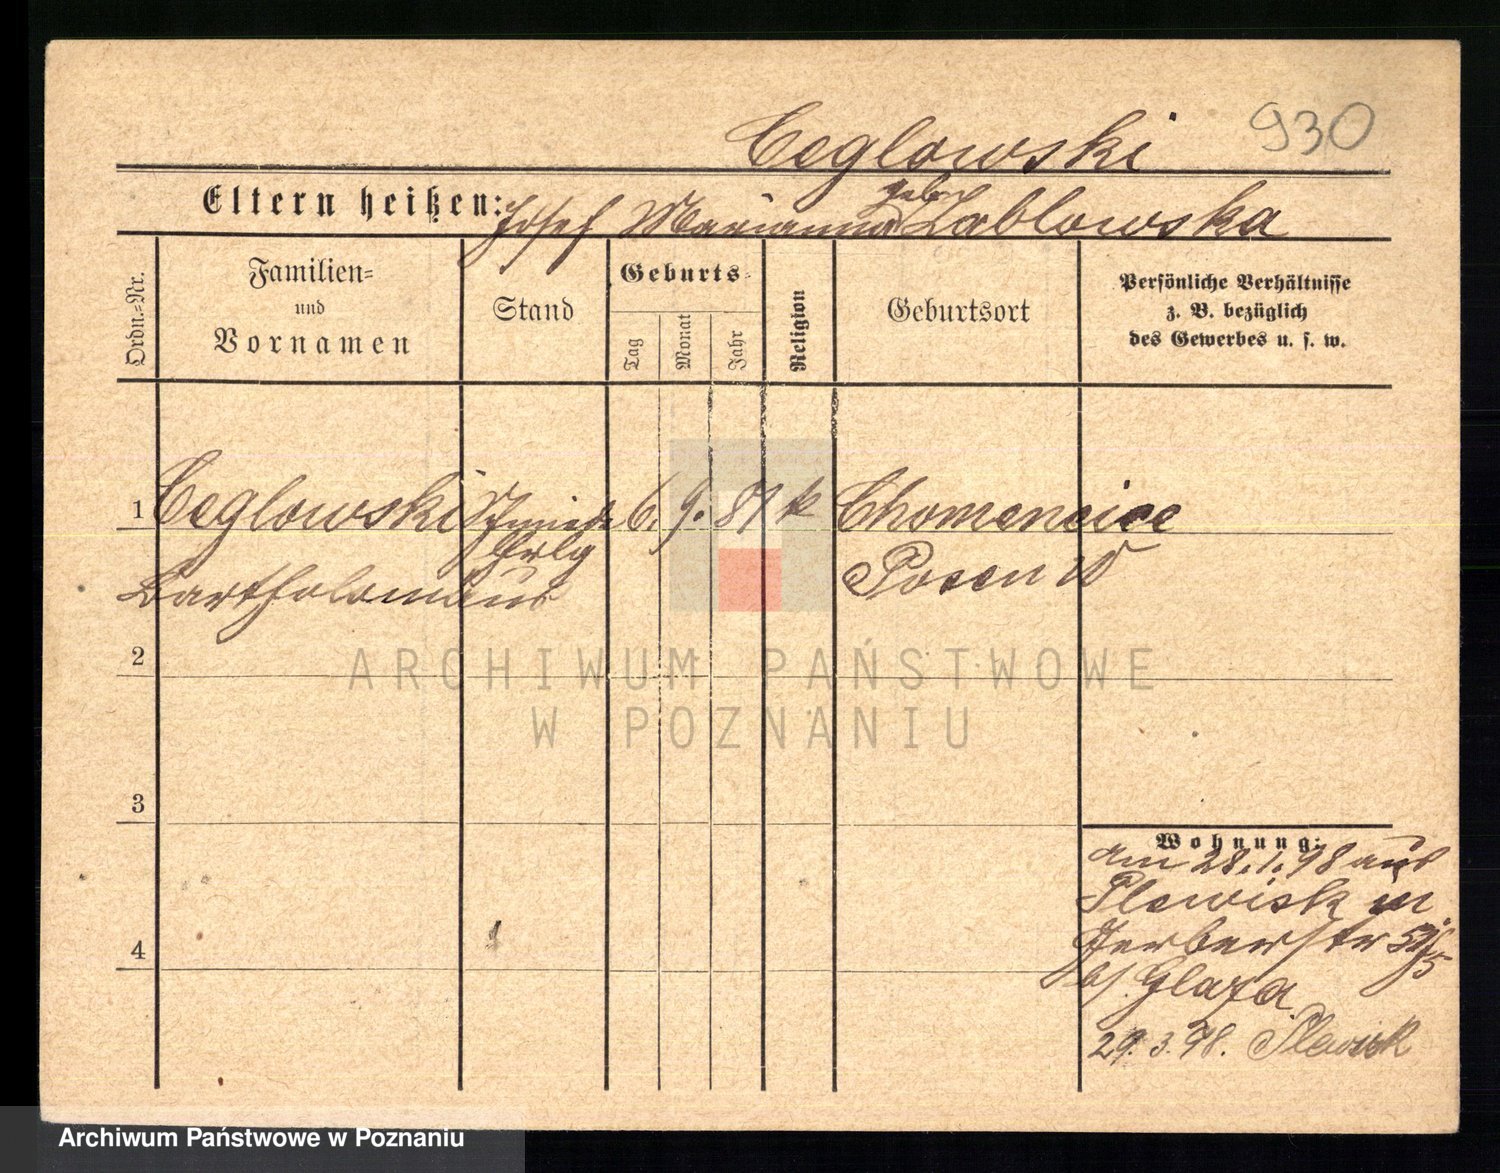 Ceglowski 930
Eltern heißen: Josef Marianna geb. Lablowska
Ordn.=Nr.
Familien=
und
Vornamen
Stand
Geburts=
Tag
Monat
Jahr
Religion
Geburtsort
Persönliche Verhältnisse
z. B. bezüglich
des Gewerbes u. s. w.
1 Ceglowski Schmiede 6. 9. 81 k Chomencice
Lhrlg Posen W
Bartholomäus
2
ARCHIWUM PAŃSTWOWE
W POZNANIU
3
4
Wohnung:
am 28.1.98 aus
Plewisk in
Gerberstr
bei Glaza
29.3.98. Plewisk
Archiwum Państwowe w Poznaniu